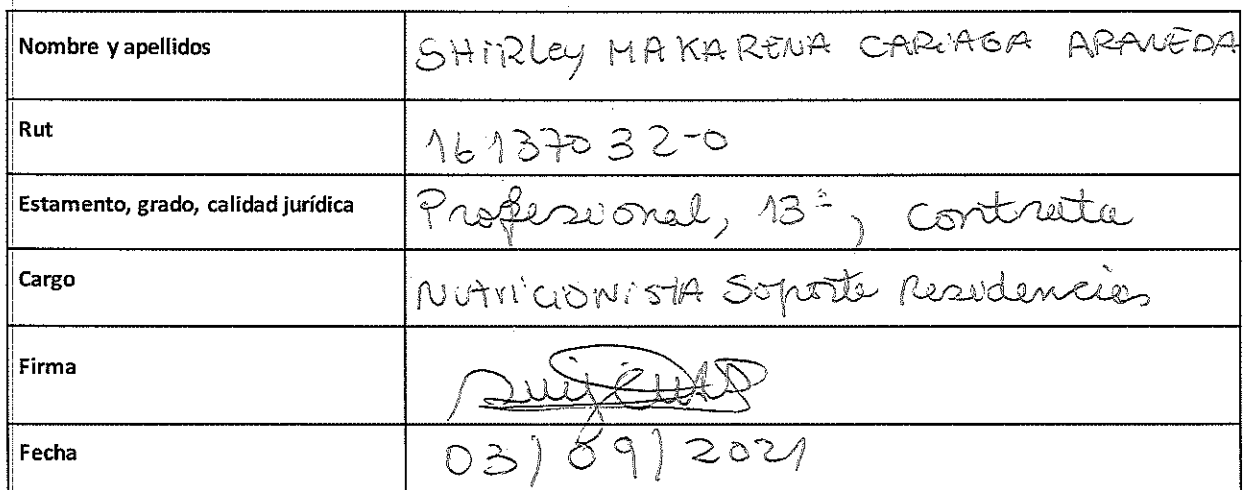 Nombre y apellidos SHiRLey MAKARENA CARiAGA ARAVEDA
Rut 16137032-0
Estamento, grado, calidad jurídica Profesional, 13º, contrata
Cargo NutriCiONiStA Soporte Residencias
Firma
Fecha 03/09/2021